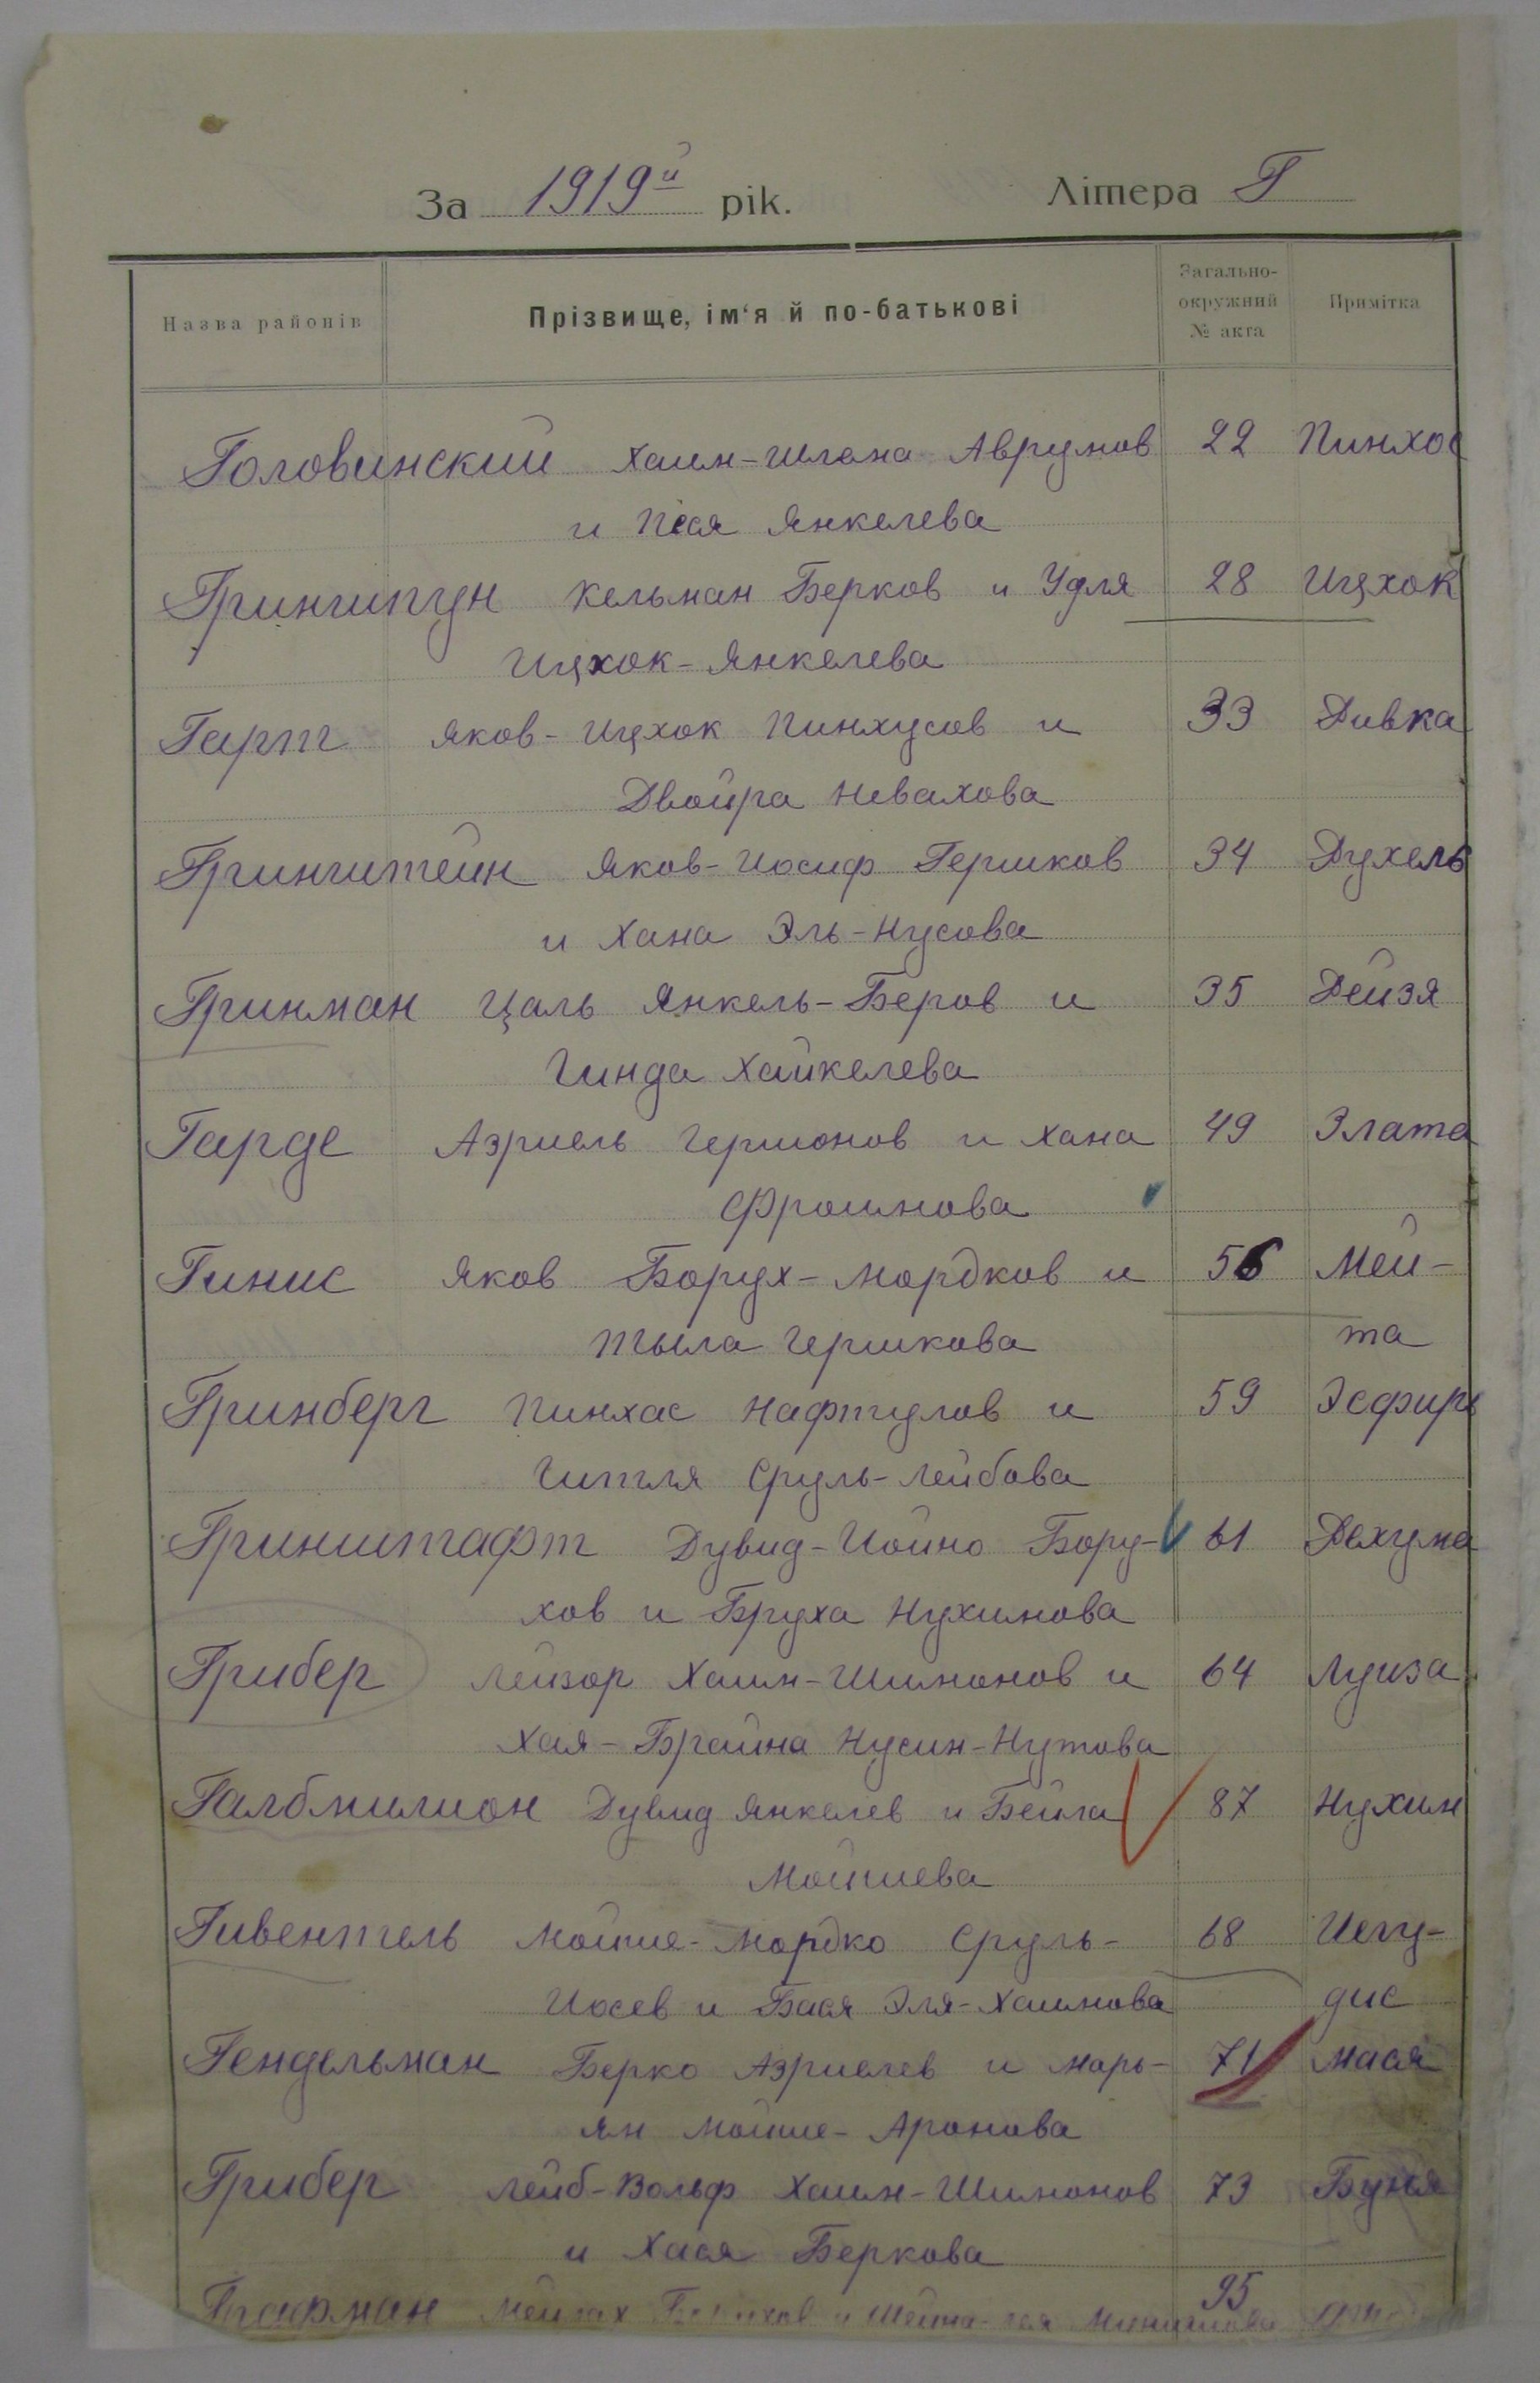 За 1919й рік. Літера Г
Назва районів Прізвище, ім'я й по-батькові Загально-окружний № акта Примітка
Головинский Хаим-Шлема Аврумов 22 Пинхос
и Песя Янкелева
Гриншпун Кельман Берков и Удля 28 Ицхок
Ицхок-Янкелева
Гарт Яков-Ицхок Пинхусов и 33 Ривка
Двойра Невахова
Гринштейн Яков-Иосиф Гершков 34 Рухель
и Хана Эль-Нусова
Гринман Цаль Янкель-Беров и 35 Рейзя
Гинда Хайкелева
Гарде Азриель Гершонов и Хана 49 Злата
Фроимова
Гинис Яков Борух-Мордков и 56 Мей-
Тыла Гершкова та
Гринберг Пинхас Нафтулов и 59 Эсфирь
Гитля Сруль-Лейбова
Гринштафт Дувид-Иойно Бору- 61 Рехума
хов и Бруха Нухимова
Грибер Лейзор Хаим-Шимонов и 64 Луиза
Хая-Брайна Нусин-Нутова
Галбмилион Дувид Янкелев и Бейла 87 Нухим
Мошиева
Гивентель Мойше-Мордко Сруль- 68 Иегу-
Иосев и Бася Эля-Хаимова дис
Гендельман Берко Азриелев и Марь- 71 Мася
ям Мойше-Аронова
Грибер Лейб-Вольф Хаим-Шимонов 73 Буня
и Хася Беркова
95